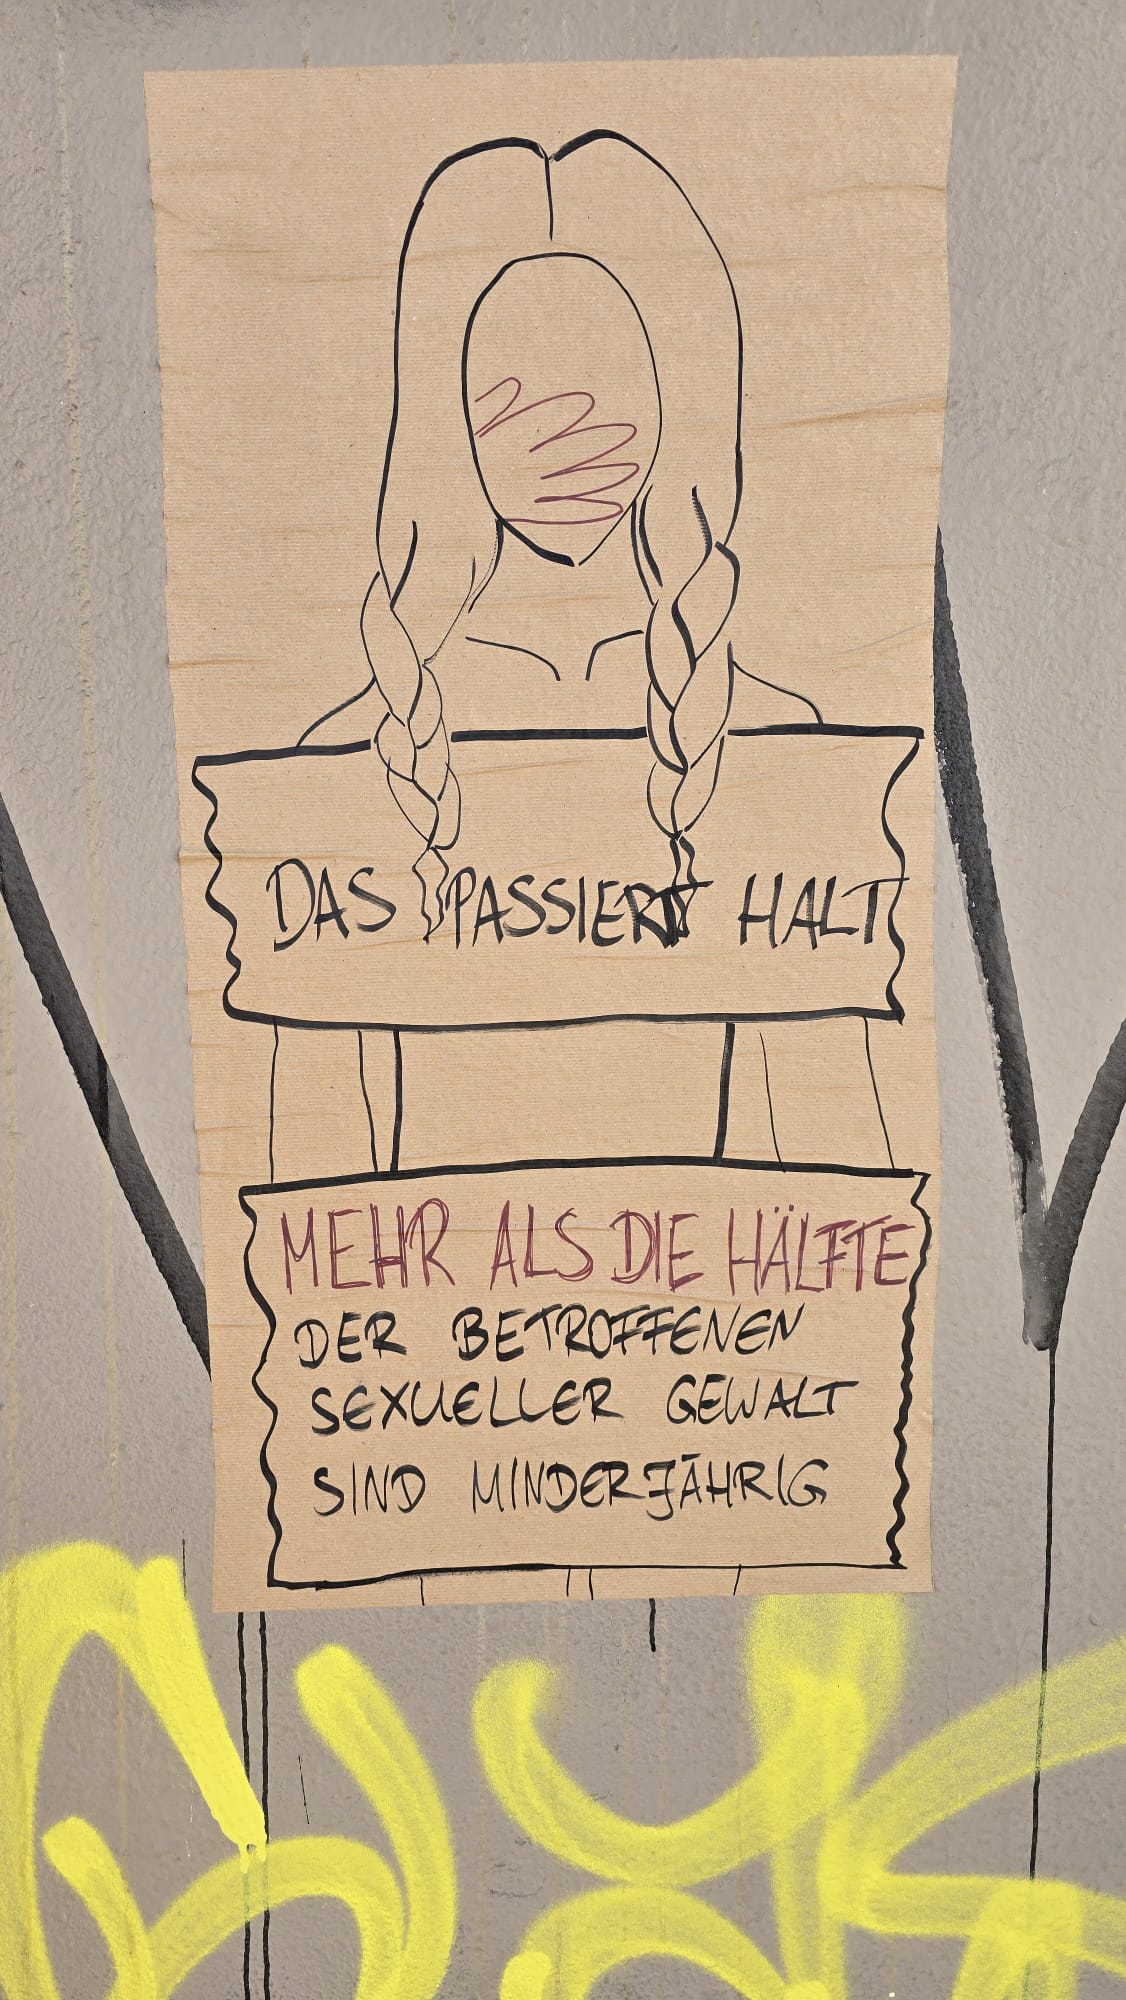 DAS PASSIERT HALT
MEHR ALS DIE HÄLFTE
DER BETROFFENEN
SEXUELLER GEWALT
SIND MINDERJÄHRIG